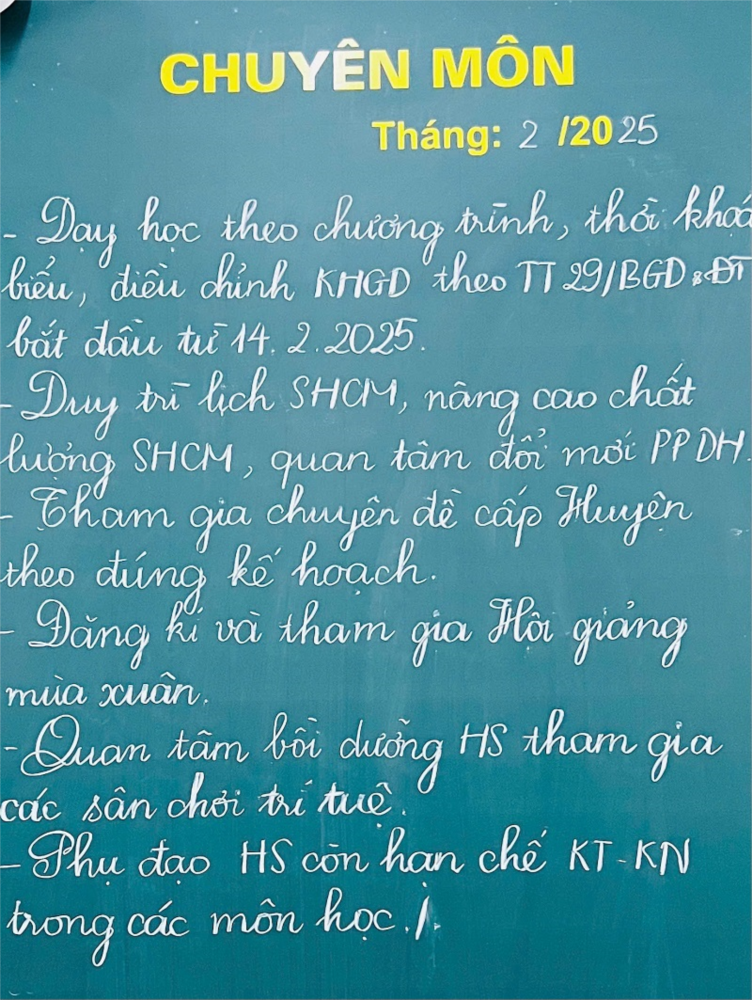 CHUYÊN MÔN
Tháng: 2 /2025
- Dạy học theo chương trình, thời khoá
biểu, điều chỉnh KHGD theo TT 29/BGD&ĐT
bắt đầu từ 14.2.2025.
- Duy trì lịch SHCM, nâng cao chất
lượng SHCM, quan tâm đổi mới PPDH.
- Tham gia chuyên đề cấp Huyện
theo đúng kế hoạch.
- Đăng kí và tham gia Hội giảng
mùa xuân.
- Quan tâm bồi dưỡng HS tham gia
các sân chơi trí tuệ.
- Phụ đạo HS còn hạn chế KT-KN
trong các môn học./.